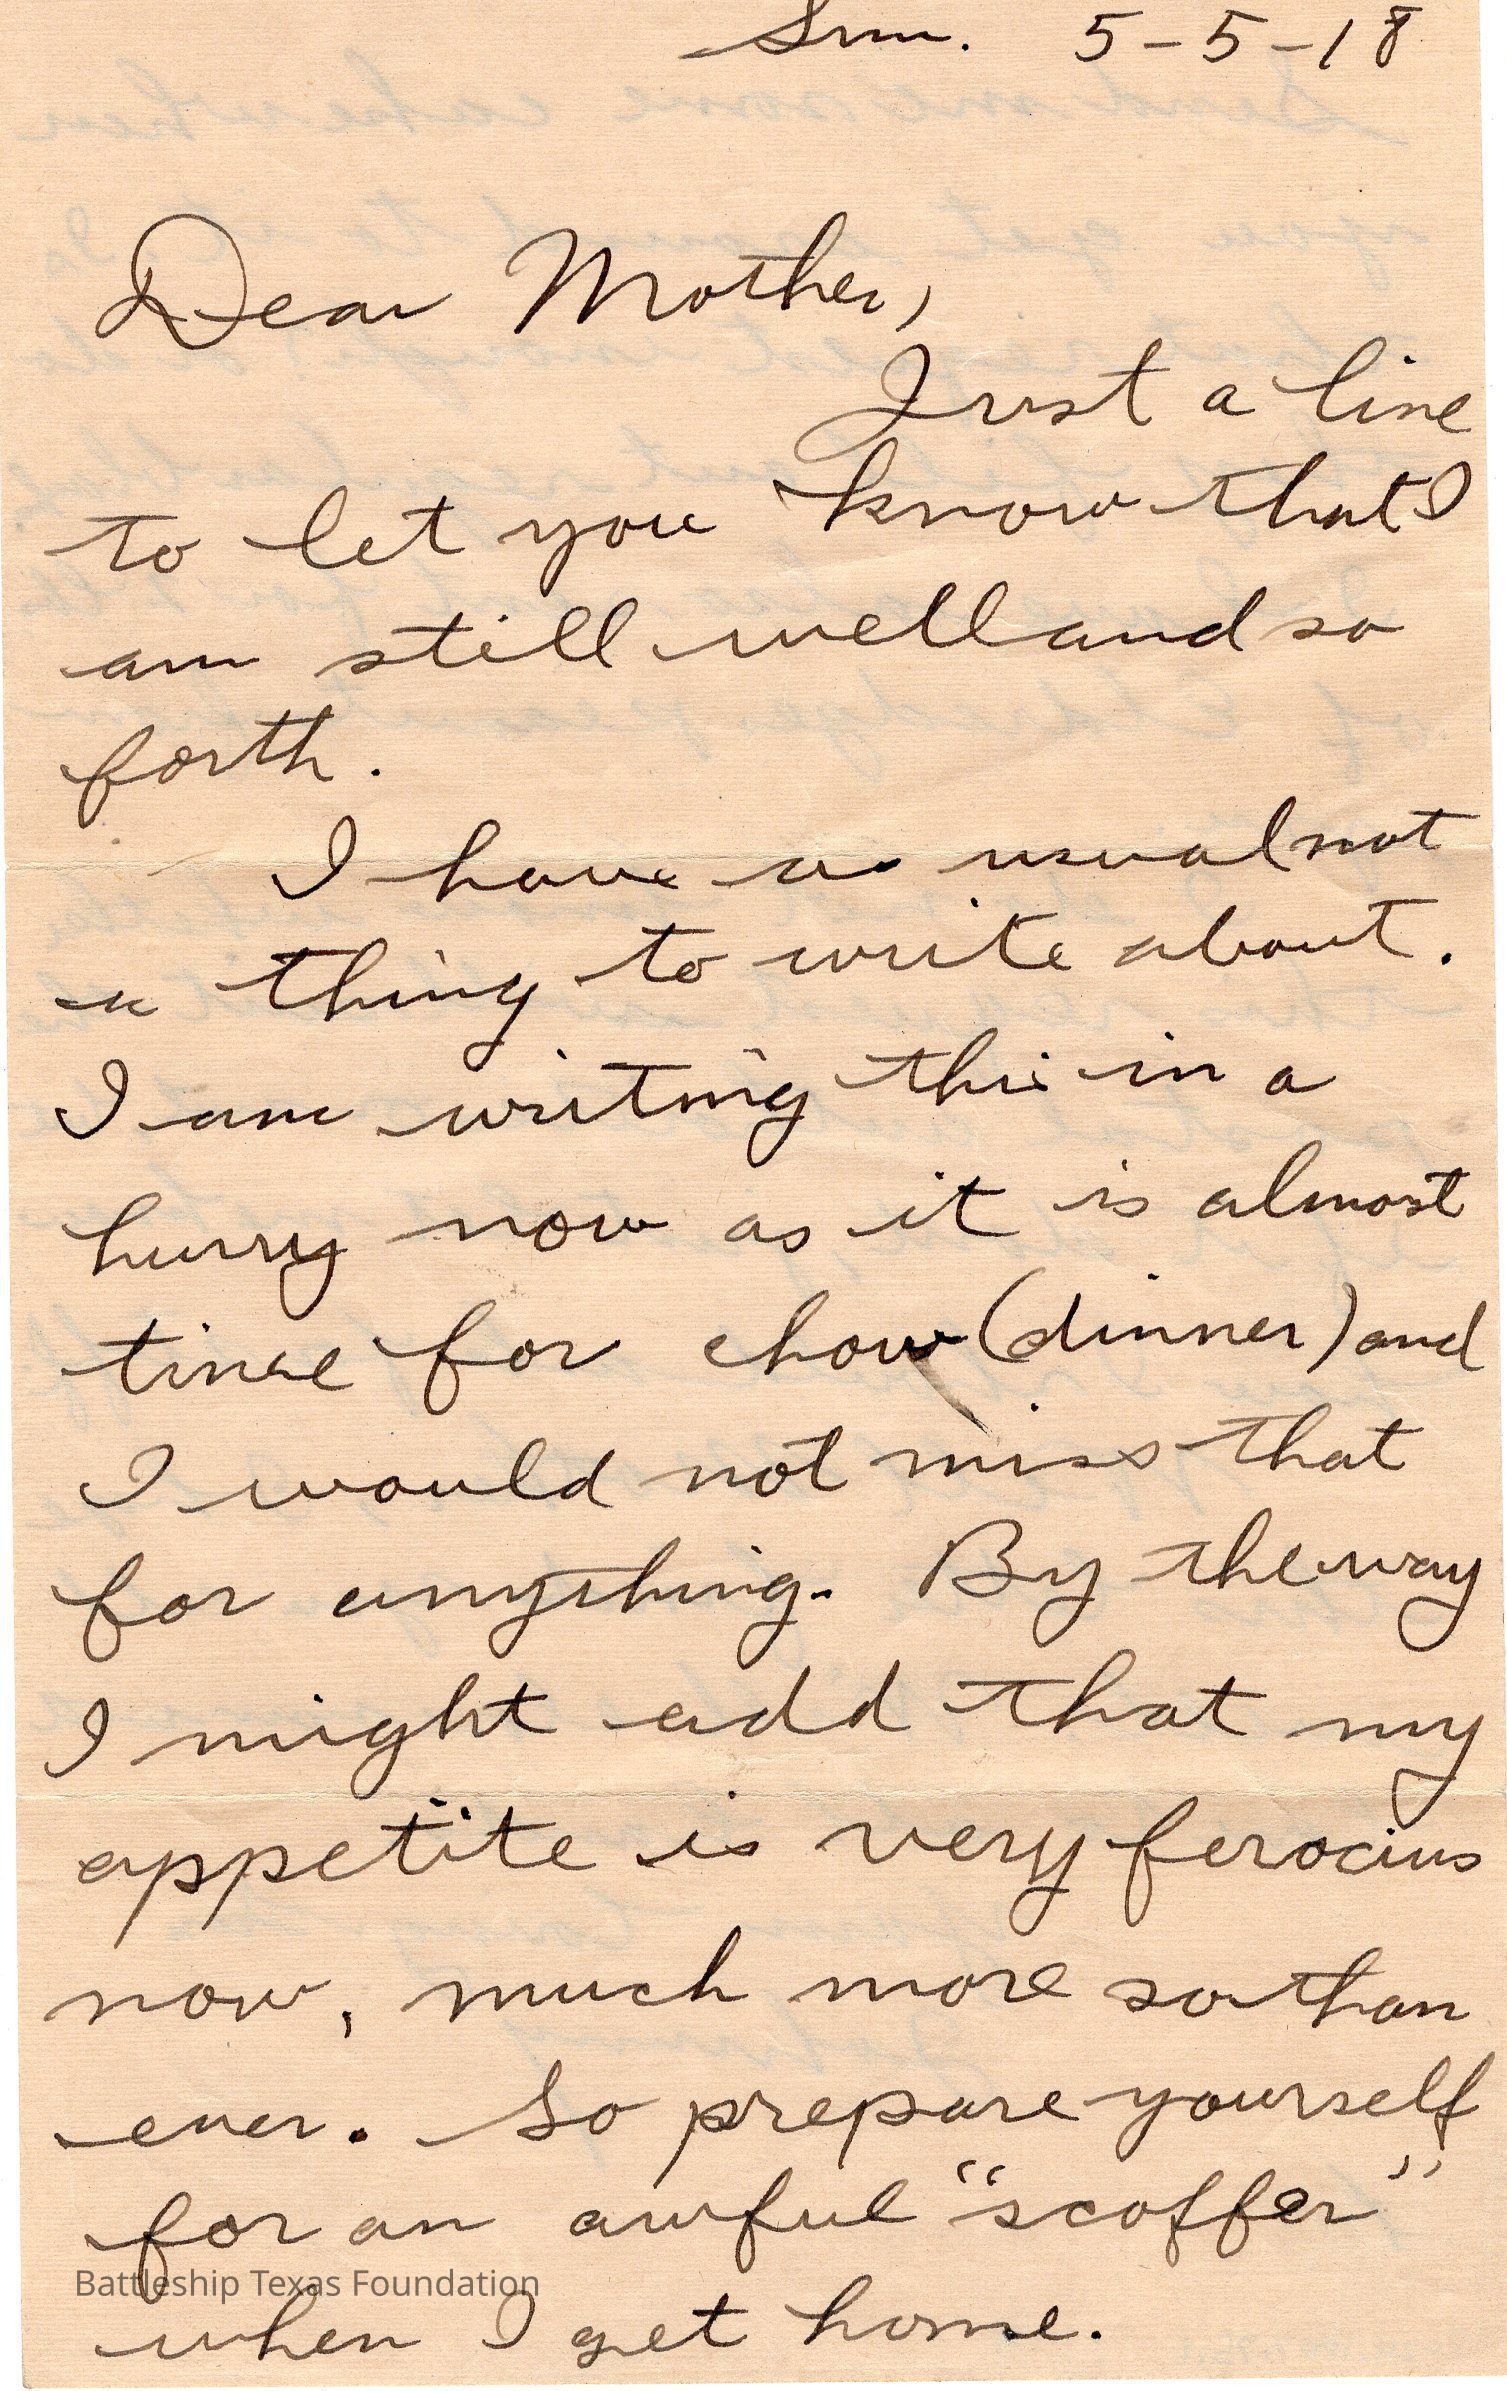 Sun. 5-5-18
Dear Mother,
Just a line
to let you know that I
am still well and so
forth.
I have as usual not
a thing to write about.
I am writing this in a
hurry now as it is almost
time for chow (dinner) and
I would not miss that
for anything. By the way
I might add that my
appetite is very ferocius
now, much more so than
ever. So prepare yourself
for an awful "scoffer"
Battleship Texas Foundation
when I get home.